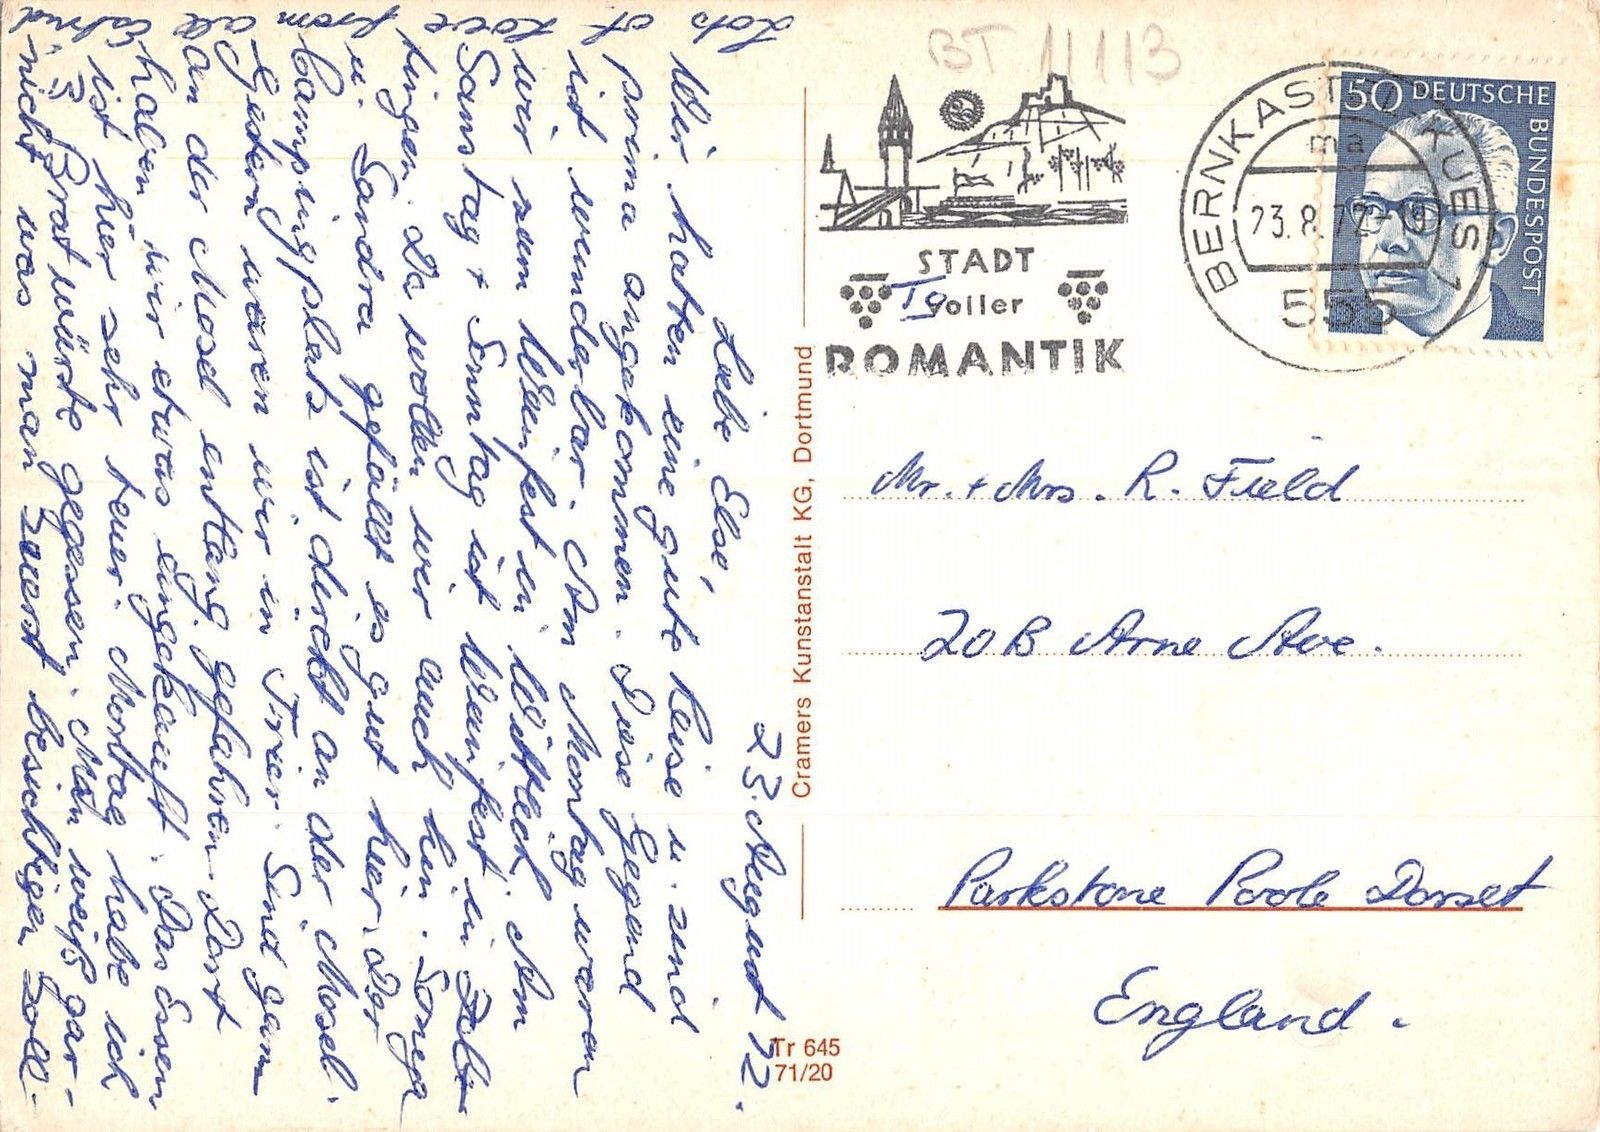 23. August 72.
Liebe Else,
Wir hatten eine gute Reise u. sind
prima angekommen. Diese Gegend
ist wunderbar. Am Montag waren
wir zum Weinfest in Wittlich. Am
Samstag + Sonntag ist Weinfest in
tingen. Da wollen wir auch hin.
u. Sandra gefällt es gut hier. Der
Campingplatz ist direkt an der Mosel.
Gestern waren wir in Trier. Sind ganz
an der Mosel entlang gefahren. Dort
haben wir etwas eingekauft. Das Essen
ist hier sehr teuer. Mottag habe ich
Bratwürste gegessen. Man weiß gar-
nicht was man zuerst besichtigen soll.
Lots of Love from all
Astrid
BT 11113
STADT
voller
ROMANTIK
BERNKASTEL-KUES 1
ma
23.8.72-19
555
50 DEUTSCHE
BUNDESPOST
Cramers Kunstanstalt KG, Dortmund
Tr 645
71/20
Mr. + Mrs. R. Field
20B Arne Ave.
Parkstone Poole Dorset
England.